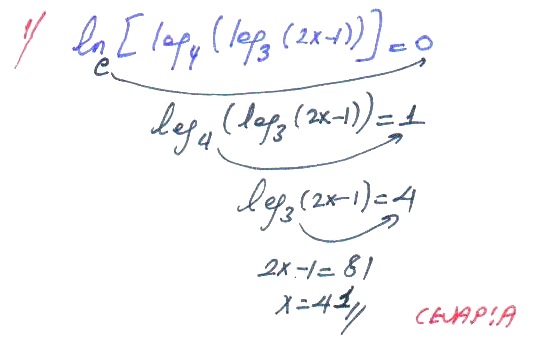 1/ ln [log₄(log₃(2x-1))]=0
e
log₄(log₃(2x-1))=1
log₃(2x-1)=4
2x-1=81
x=41//
CEVAP:A